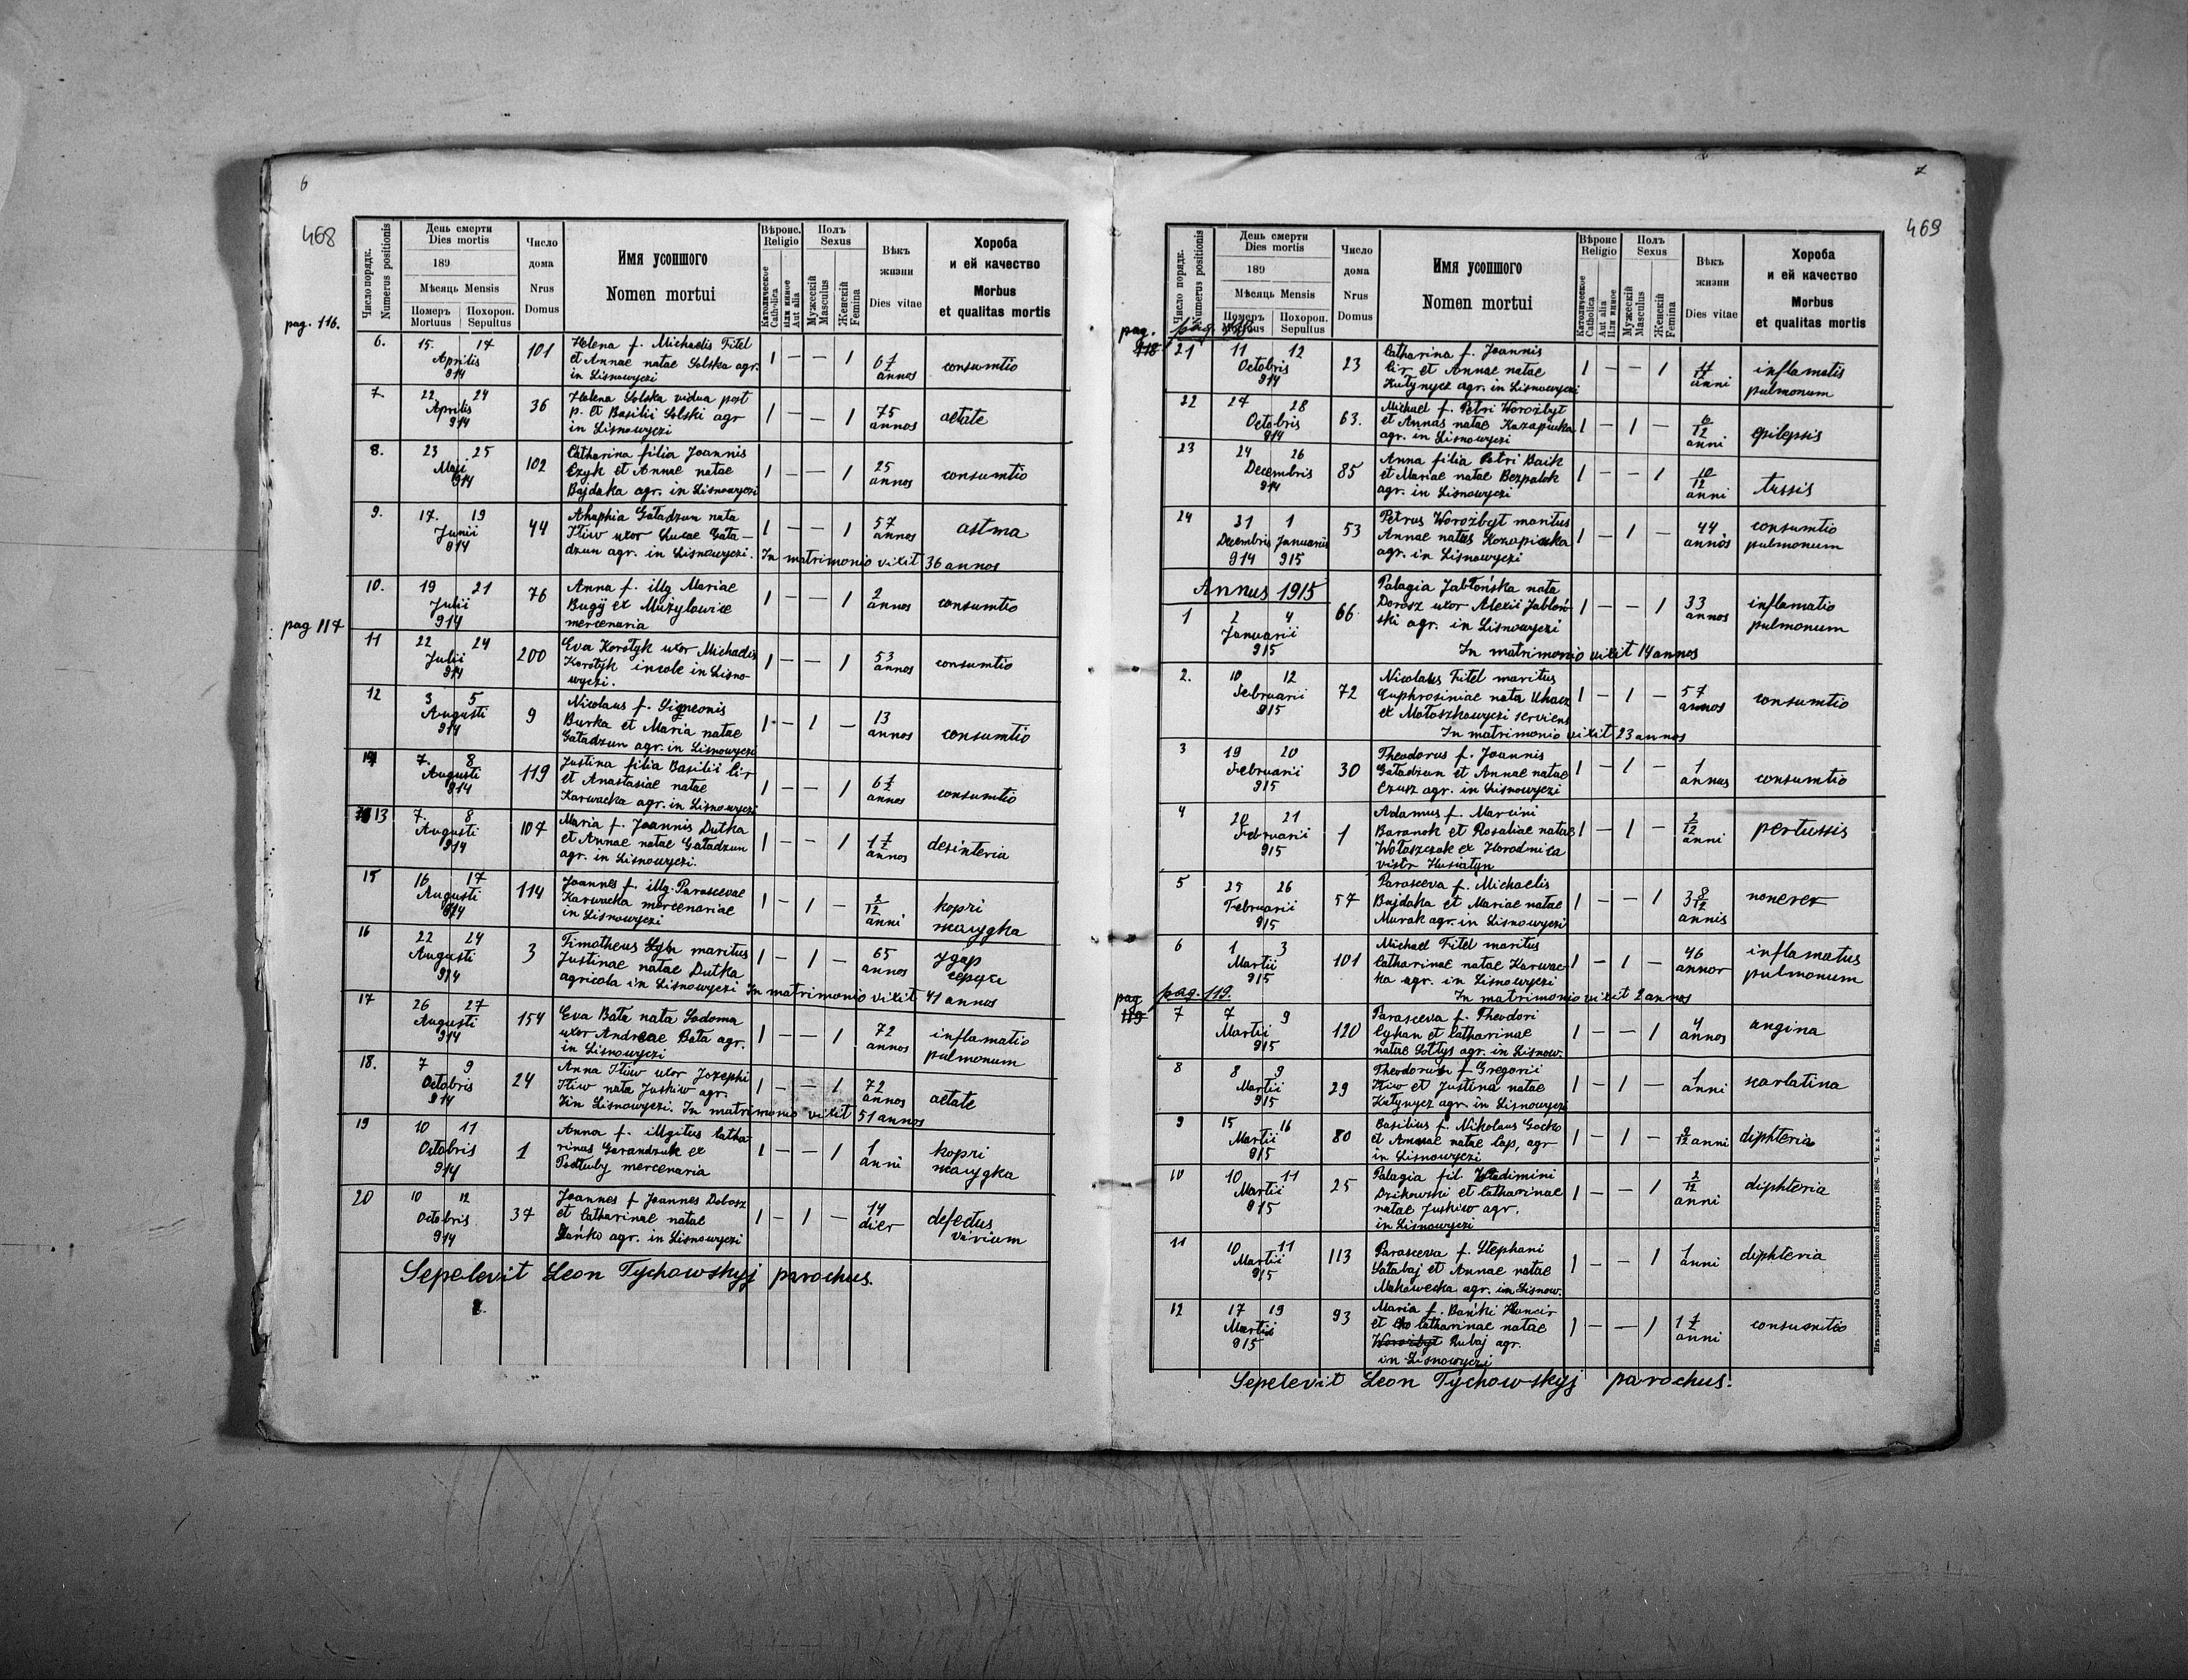 6
468
Число порядк.
Numerus positionis
День смерти
Dies mortis
189
Мѣсяць Mensis
Померъ
Mortuus
Похорон.
Sepultus
Число
дома
Nrus
Domus
Имя усопшого
Nomen mortui
Вѣроис.
Religio
Католическое
Catholica
Или иное
Aut alia
Полъ
Sexus
Мужескій
Masculus
Женскій
Femina
Вѣкъ
жизни
Dies vitae
Хороба
и ей качество
Morbus
et qualitas mortis
pag. 116.
6. 15. 17 Aprilis 914 101
Helena f. Michaelis Fitel
et Annae natae Solska agr.
in Lisnowyczi
1 — — 1 6½ annos consumtio
7. 22 24 Aprilis 914 36
Helena Solska vidua post
p. et Basilii Solski agr
in Lisnowyczi
1 — — 1 75 annos aetate
8. 23 25 Maji 914 102
Catharina filia Joannis
Czyk et Annae natae
Bajdaka agr. in Lisnowyczi
1 — — 1 25 annos consumtio
9. 17. 19 Junii 914 44
Ahaphia Gaładzun nata
Iłiw uxor Lucae Gała-
dzun agr. in Lisnowyczi. In matrimonio vixit 36 annos
1 — — 1 57 annos astma
10. 19 21 Julii 914 76
Anna f. illg Mariae
Bugij ex Mużylowice
mercenaria
1 — — 1 2 annos consumtio
pag 117
11 22 24 Julii 914 200
Eva Korotyk uxor Michaelis
Korotyk incole in Lisno-
wyczi.
1 — — 1 53 annos consumtio
12 3 5 Augusti 914 9
Nicolaus f. Simeonis
Burka et Maria natae
Gaładzun agr. in Lisnowyczi
1 — 1 — 13 annos consumtio
14 7. 8 Augusti 914 119
Justina filia Basilii Cir
et Anastasiae natae
Karwacka agr. in Lisnowyczi
1 — — 1 6½ annos consumtio
13 7. 8 Augusti 914 107
Maria f. Joannis Dutka
et Annae natae Gaładzun
agr. in Lisnowyczi.
1 — — 1 1½ annos desinteria
15 16 17 Augusti 914 114
Joannes f. illg. Parascevae
Karwacka mercenariae
in Lisnowyczi
1 — 1 — 2/12 anni kopri
16 22 24 Augusti 914 3
Timotheus maritus
Justinae natae Dutka
agricola in Lisnowyczi In matrimonio vixit 41 annos
1 — 1 — 65 annos удар серця
17 26 27 Augusti 914 154
Eva Bała nata Sodoma
uxor Andreae Bała agr.
in Lisnowyczi
1 — — 1 72 annos inflamatio pulmonum
18. 7 9 Octobris 914 24
Anna Iłiw uxor Jozephi
Iłiw nata Juskiw agr.
in Lisnowyczi. In matrimonio vixit 51 annos
1 — — 1 72 annos aetate
19 10 11 Octobris 914 1
Anna f. illgitus Catha
rinas Garandzuk ex
Podłuby mercenaria
1 — — 1 1 anni kopri
20 10 12 Octobris 914 37
Joannes f Joannes Dobosz
et Catharinae natae
Dańko agr. in Lisnowyczi
1 — 1 — 14 dier defectus virium
Sepelevit Leon Tychowskyj parochus.
7
469
Число порядк.
Numerus positionis
День смерти
Dies mortis
189
Мѣсяць Mensis
Померъ
Mortuus
Похорон.
Sepultus
Число
дома
Nrus
Domus
Имя усопшого
Nomen mortui
Вѣроис
Religio
Католическое
Catholica
Aut alia
Или иное
Полъ
Sexus
Мужескій
Masculus
Женскій
Femina
Вѣкъ
жизни
Dies vitae
Хороба
и ей качество
Morbus
et qualitas mortis
pag. 118
21 11 12 Octobris 914 23
Catharina f. Joannis
Cir et Annae natae
Kułynycz agr. in Lisnowyczi
1 — — 1 anni inflamatis pulmonum
22 27 28 Octobris 914 63.
Michael f. Petri Worożbyt
et Annas natae Kozapiwka
agr. in Lisnowyczi
1 — 1 — 6/12 anni epilepsis
23 24 26 Decembris 914 85
Anna filia Petri Baik
et Mariae natae Bezpalok
agr. in Lisnowyczi
1 — — 1 10/12 anni tussis
24 31 1 Decembris Januarius 914 915 53
Petrus Worożbyt maritus
Annae natus Kozapiwka
agr. in Lisnowyczi
1 — 1 — 44 annos consumtio pulmonum
Annus 1915
1 2 4 Januarii 915 66
Palagia Jabłońska nata
Dorosz uxor Alexii Jabłoń-
ski agr. in Lisnowyczi
In matrimonio vixit 14 annos
1 — — 1 33 annos inflamatio pulmonum
2. 10 12 Februarii 915 72
Nicolaus Fitel maritus
Euphrosiniae nata Uhacz
ex Małoszkowyczi serviens
In matrimonio vixit 23 annos
1 — 1 — 57 annos consumtio
3 19 20 Februarii 915 30
Theodorus f. Joannis
Gaładzun et Annae natae
Czusz agr. in Lisnowyczi
1 — 1 — 1 annus consumtio
4 20 21 Februarii 915 1
Adamus f. Marcini
Baranok et Rosaliae natae
Wołoszczak ex Horodnica
distr Husiatyn
1 — 1 — 2/12 anni pertussis
5 25 26 Februarii 915 57
Parasceva f. Michaelis
Bajdaka et Mariae natae
Murak agr. in Lisnowyczi
1 — — 1 3 8/12 annis
6 1 3 Martii 915 101
Michael Fitel maritus
Catharinae natae Karwac-
ka agr. in Lisnowyczi
In matrimonio vixit 2 annos
1 — 1 — 46 annor inflamatus pulmonum
pag. 119.
7 7 9 Martii 915 120
Parasceva f. Theodori
Cyhan et Catharinae
natae Sołtys agr. in Lisnow.
1 — — 1 4 annos angina
8 8 9 Martii 915 29
Theodorus f Gregorii
Iłiw et Justina natae
Kułynycz agr. in Lisnowyczi
1 — 1 — 1 anni scarlatina
9 15 16 Martii 915 80
Basilius f. Nikolaus Gocko
et Annae natae Cap, agr
in Lisnowyczi
1 — 1 — 2/12 anni diphteria
10 10 11 Martii 915 25
Palagia fil. Wladimini
Dzikowski et Catharinae
natae Juskiw agr.
in Lisnowyczi
1 — — 1 2/12 anni diphteria
11 10 11 Martii 915 113
Parasceva f. Stephani
Sałabaj et Annae natae
Makowecka agr. in Lisnow.
1 — — 1 1 anni diphteria
12 17 19 Martii 915 93
Maria f. Bańki Huncir
et Catharinae natae
Worożbyt Rubaj agr.
in Lisnowyczi
1 — — 1 1½ anni consumtio
Sepelevit Leon Tychowskyj parochus.
Изъ типографіи Ставропигійского Института 1896. — Ч. к. а. 5.